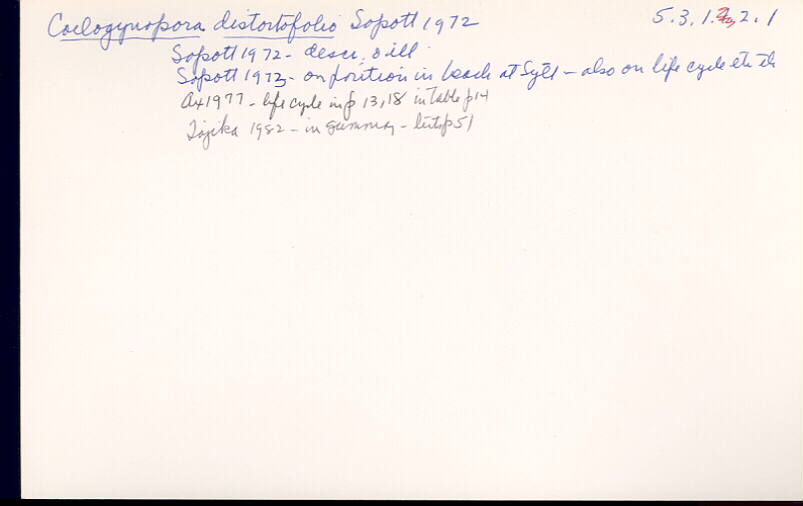 Coelogynopora distortofolio Sopott 1972 5.3.1. 2.1
Sopott 1972 - descr. & ill.
Sopott 1973 - on position in beach at Sylt - also on life cycle etc
Ax 1977 - life cycle info p 13, 18 in table p 14
Tajika 1982 - in summary - list p 51